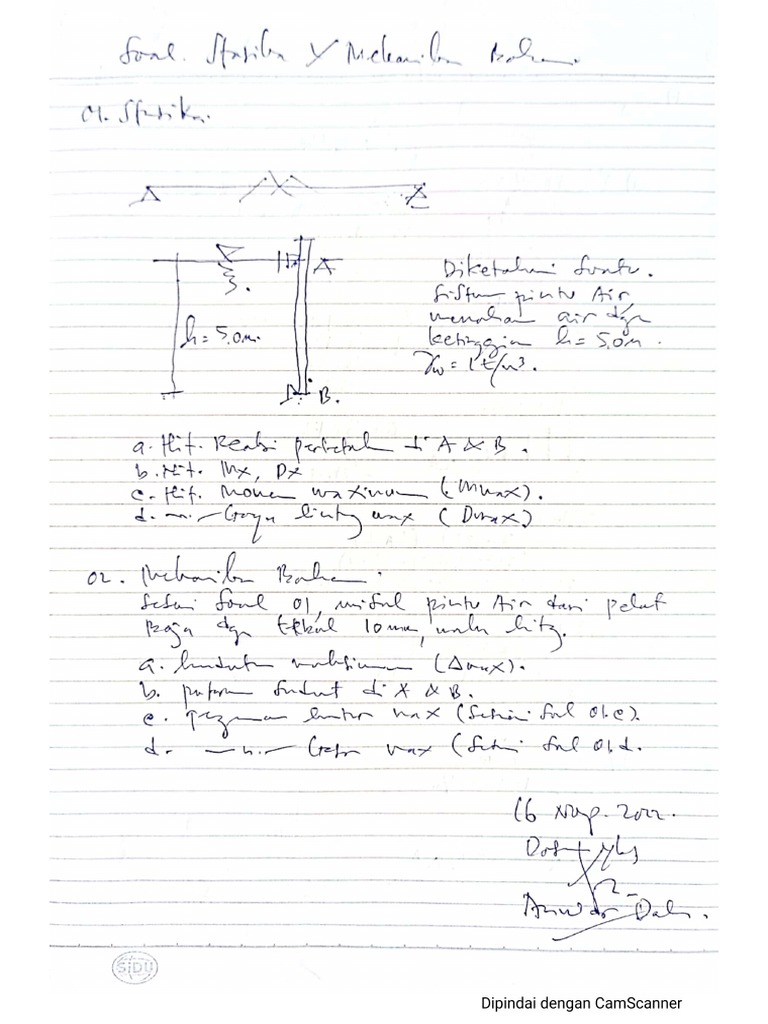 Soal. Statika & Mekanika Bahan.
01. Statika.
A
h = 5.0 m.
B.
Diketahui suatu.
Sistem pintu Air
menahan air dgn
ketinggian h = 5.0 m.
γw = 1 t/m³.
a. Hit. Reaksi perletakan di A & B.
b. Hit. Mx, Dx
c. Hit. Momen maximum (Mmax).
d. Gaya lintang max (Dmax)
02. Mekanika Bahan.
Sesuai Soal 01, misal pintu Air dari pelat
Baja dgn tebal 10 mm, maka hitg.
a. lendutan maksimum (Δmax).
b. putaran sudut di A & B.
c. tegangan lentur max (Sesuai Soal 01.c).
d. Geser max (Sesuai Soal 01.d.
16 2022.
Anwar
SiDU
Dipindai dengan CamScanner